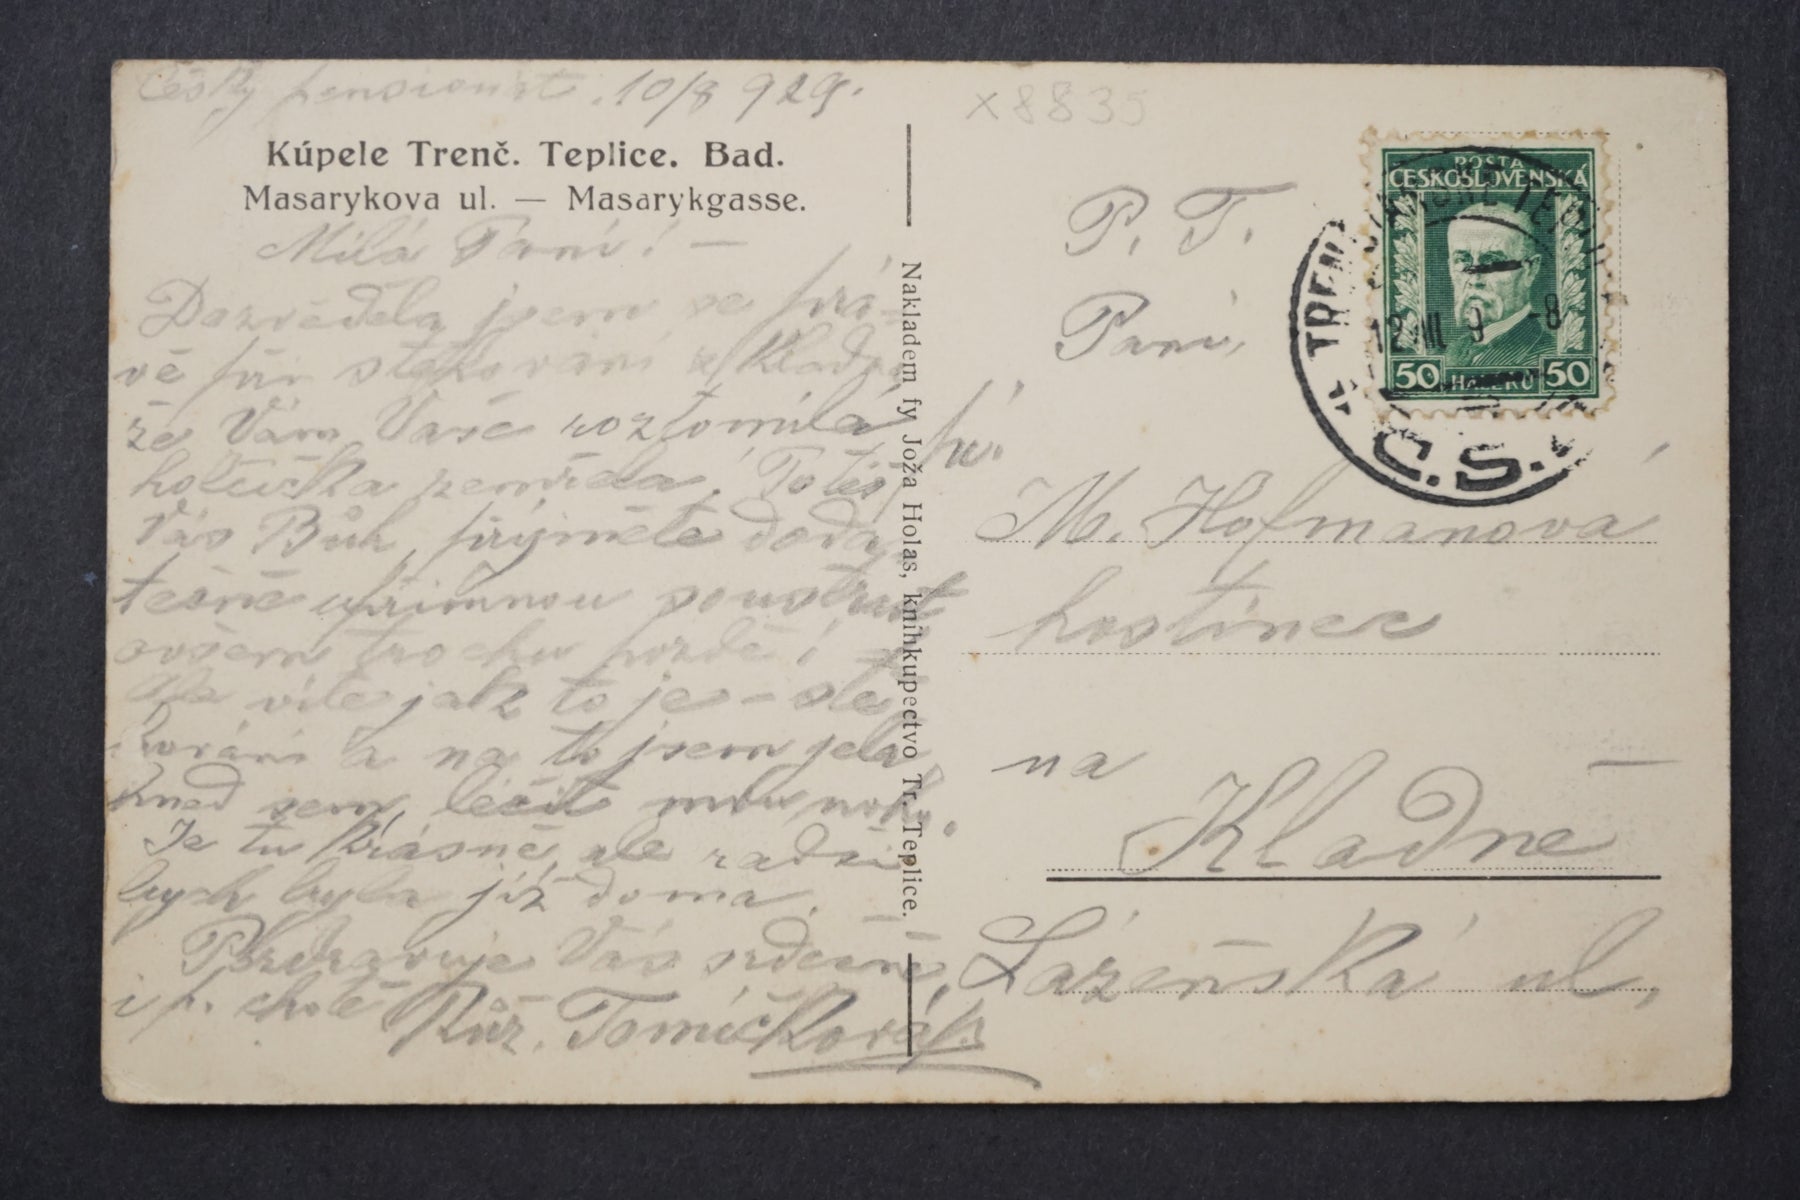 Český pensionát. 10/8 929.
Kúpele Trenč. Teplice. Bad.
Masarykova ul. — Masarykgasse.
Milá Paní! —
Dozvěděla jsem se prá-
vě při stěhování z Kladna
že Vám Vaše roztomilá
holčička zemřela. Potěš
Vás Bůh, přijměte doda-
tečně upřímnou soustrast
ovšem trochu pozdě!
víte jak to je - stě-
hování a na to jsem jela
hned sem léčit mou nohu.
Je tu krásně, ale radši
bych byla již doma.
Pozdravuje Vás srdečně
i p. chotě Růž. Tomíčková
Nakladem fy Joža Holas, knihkupectvo Tr. Teplice.
x8835
P. T.
Paní,
pí.
M. Hofmanová
hostinec
na
Kladně
Lázeňská ul.
POŠTA
ČESKOSLOVENSKÁ
50 HALÉŘŮ 50
12.VIII 9 -8
Č.S.